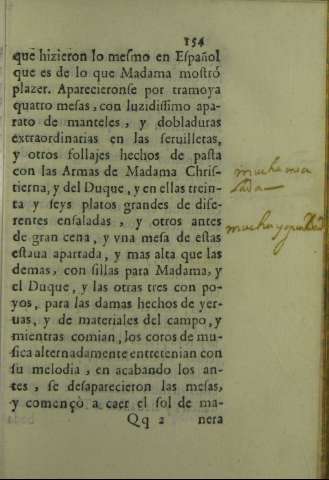 154
que hizieron lo meſmo en Eſpañol
que es de lo que Madama moſtró
plazer. Aparecieronſe por tramoya
quatro meſas, con luzidiſſimo apa-
rato de manteles, y dobladuras
extraordinarias en las ſeruilletas,
y otros follajes hechos de paſta
con las Armas de Madama Chriſ-
tierna, y del Duque, y en ellas trein-
ta y ſeys platos grandes de dife-
rentes enſaladas, y otros antes
de gran cena, y vna meſa de eſtas
eſtaua apartada, y mas alta que las
demas, con ſillas para Madama, y
el Duque, y las otras tres con po-
yos, para las damas hechos de yer-
uas, y de materiales del campo, y
mientras comian, los coros de mu-
ſica alternadamente entretenian con
ſu melodia, en acabando los an-
tes, ſe deſaparecieron las meſas,
y començò a caer el ſol de ma-
Qq 2 nera
mucha
mucha